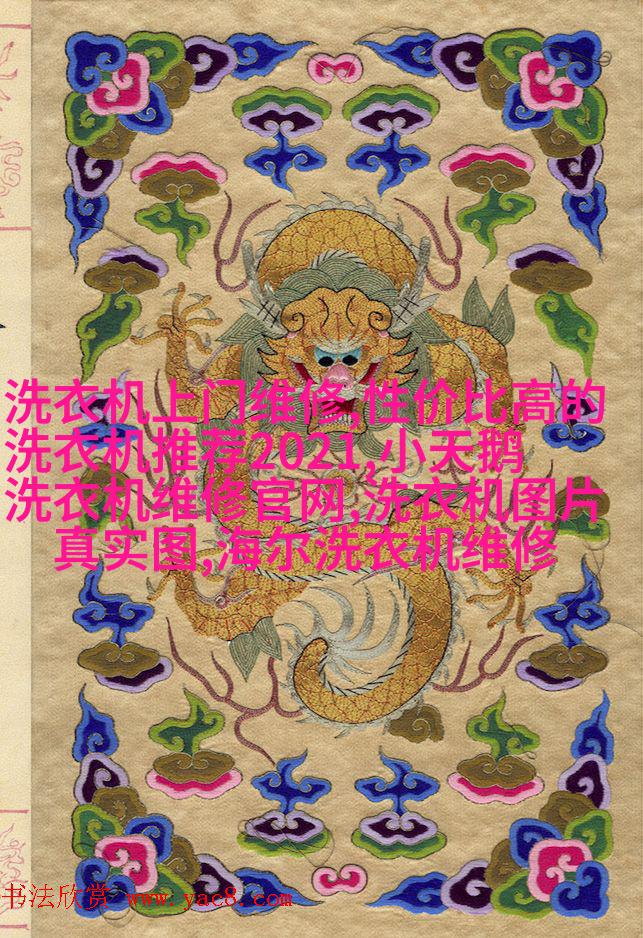 洗衣机上门维修,性价比高的
洗衣机推荐2021,小天鹅
洗衣机维修官网,洗衣机图片
真实图,海尔洗衣机维修
书法欣赏 www.yac8.com